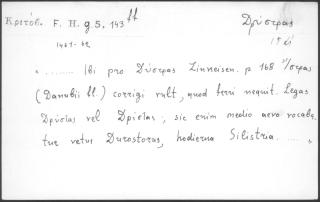 Κριτόβ. F. H. g 5. 143 ff
Δρύστρας
1461-62
" ........ Ibi pro Δύστρας Linneisen. p 168
(Danubii fl.) corrigi vult, quod ferri nequit. Legas
Δρύστας vel Δρίστας, sic enim medio aevo vocaba
tur vetus Durostoros, hodierna Silistria. ..... "